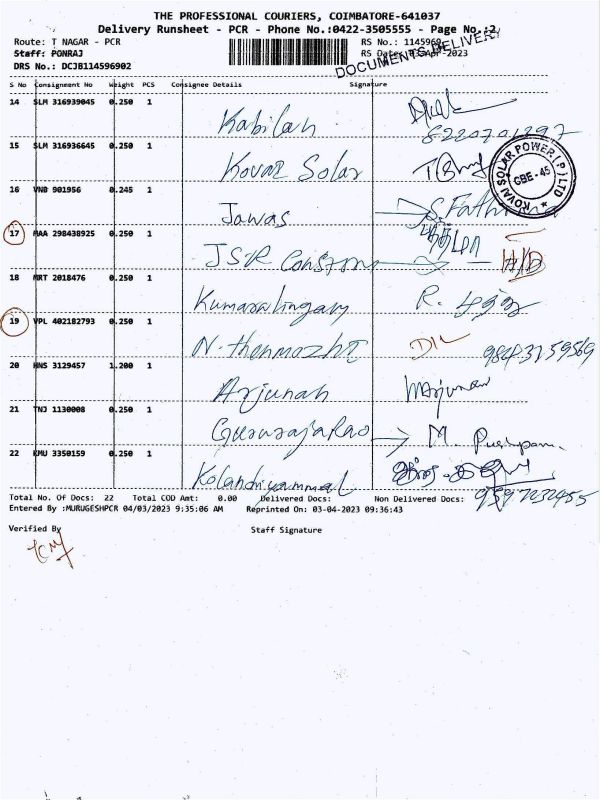 THE PROFESSIONAL COURIERS, COIMBATORE-641037
Delivery Runsheet - PCR - Phone No.:0422-3505555 - Page No.:2
Route: T NAGAR - PCR RS No.: 1145969
Staff: PONRAJ RS Date: 03-Apr-2023
DRS No.: DCJB114596902
DOCUMENTS DELIVERY
S No Consignment No Weight PCS Consignee Details Signature
14 SLM 316939045 0.250 1
Kabilan 8220701297
15 SLM 316936645 0.250 1
Kovai Solar
KOVAI SOLAR POWER (P) LTD CBE - 45
16 VNB 901956 0.245 1
Jawas
17 MAA 298438925 0.250 1
JSR H/D
18 MRT 2018476 0.250 1
Kumaralingam R.
19 VPL 402182793 0.250 1
N. Thenmozhi DIL 9843159569
20 HNS 3129457 1.200 1
Arjunan Marjunan
21 TNJ 1130008 0.250 1
Gururajarao M. Pushpam.
22 KMU 3350159 0.250 1
Kolandiyammal 9597232455
Total No. Of Docs: 22 Total COD Amt: 0.00 Delivered Docs: Non Delivered Docs:
Entered By :MURUGESHPCR 04/03/2023 9:35:06 AM Reprinted On: 03-04-2023 09:36:43
Verified By Staff Signature